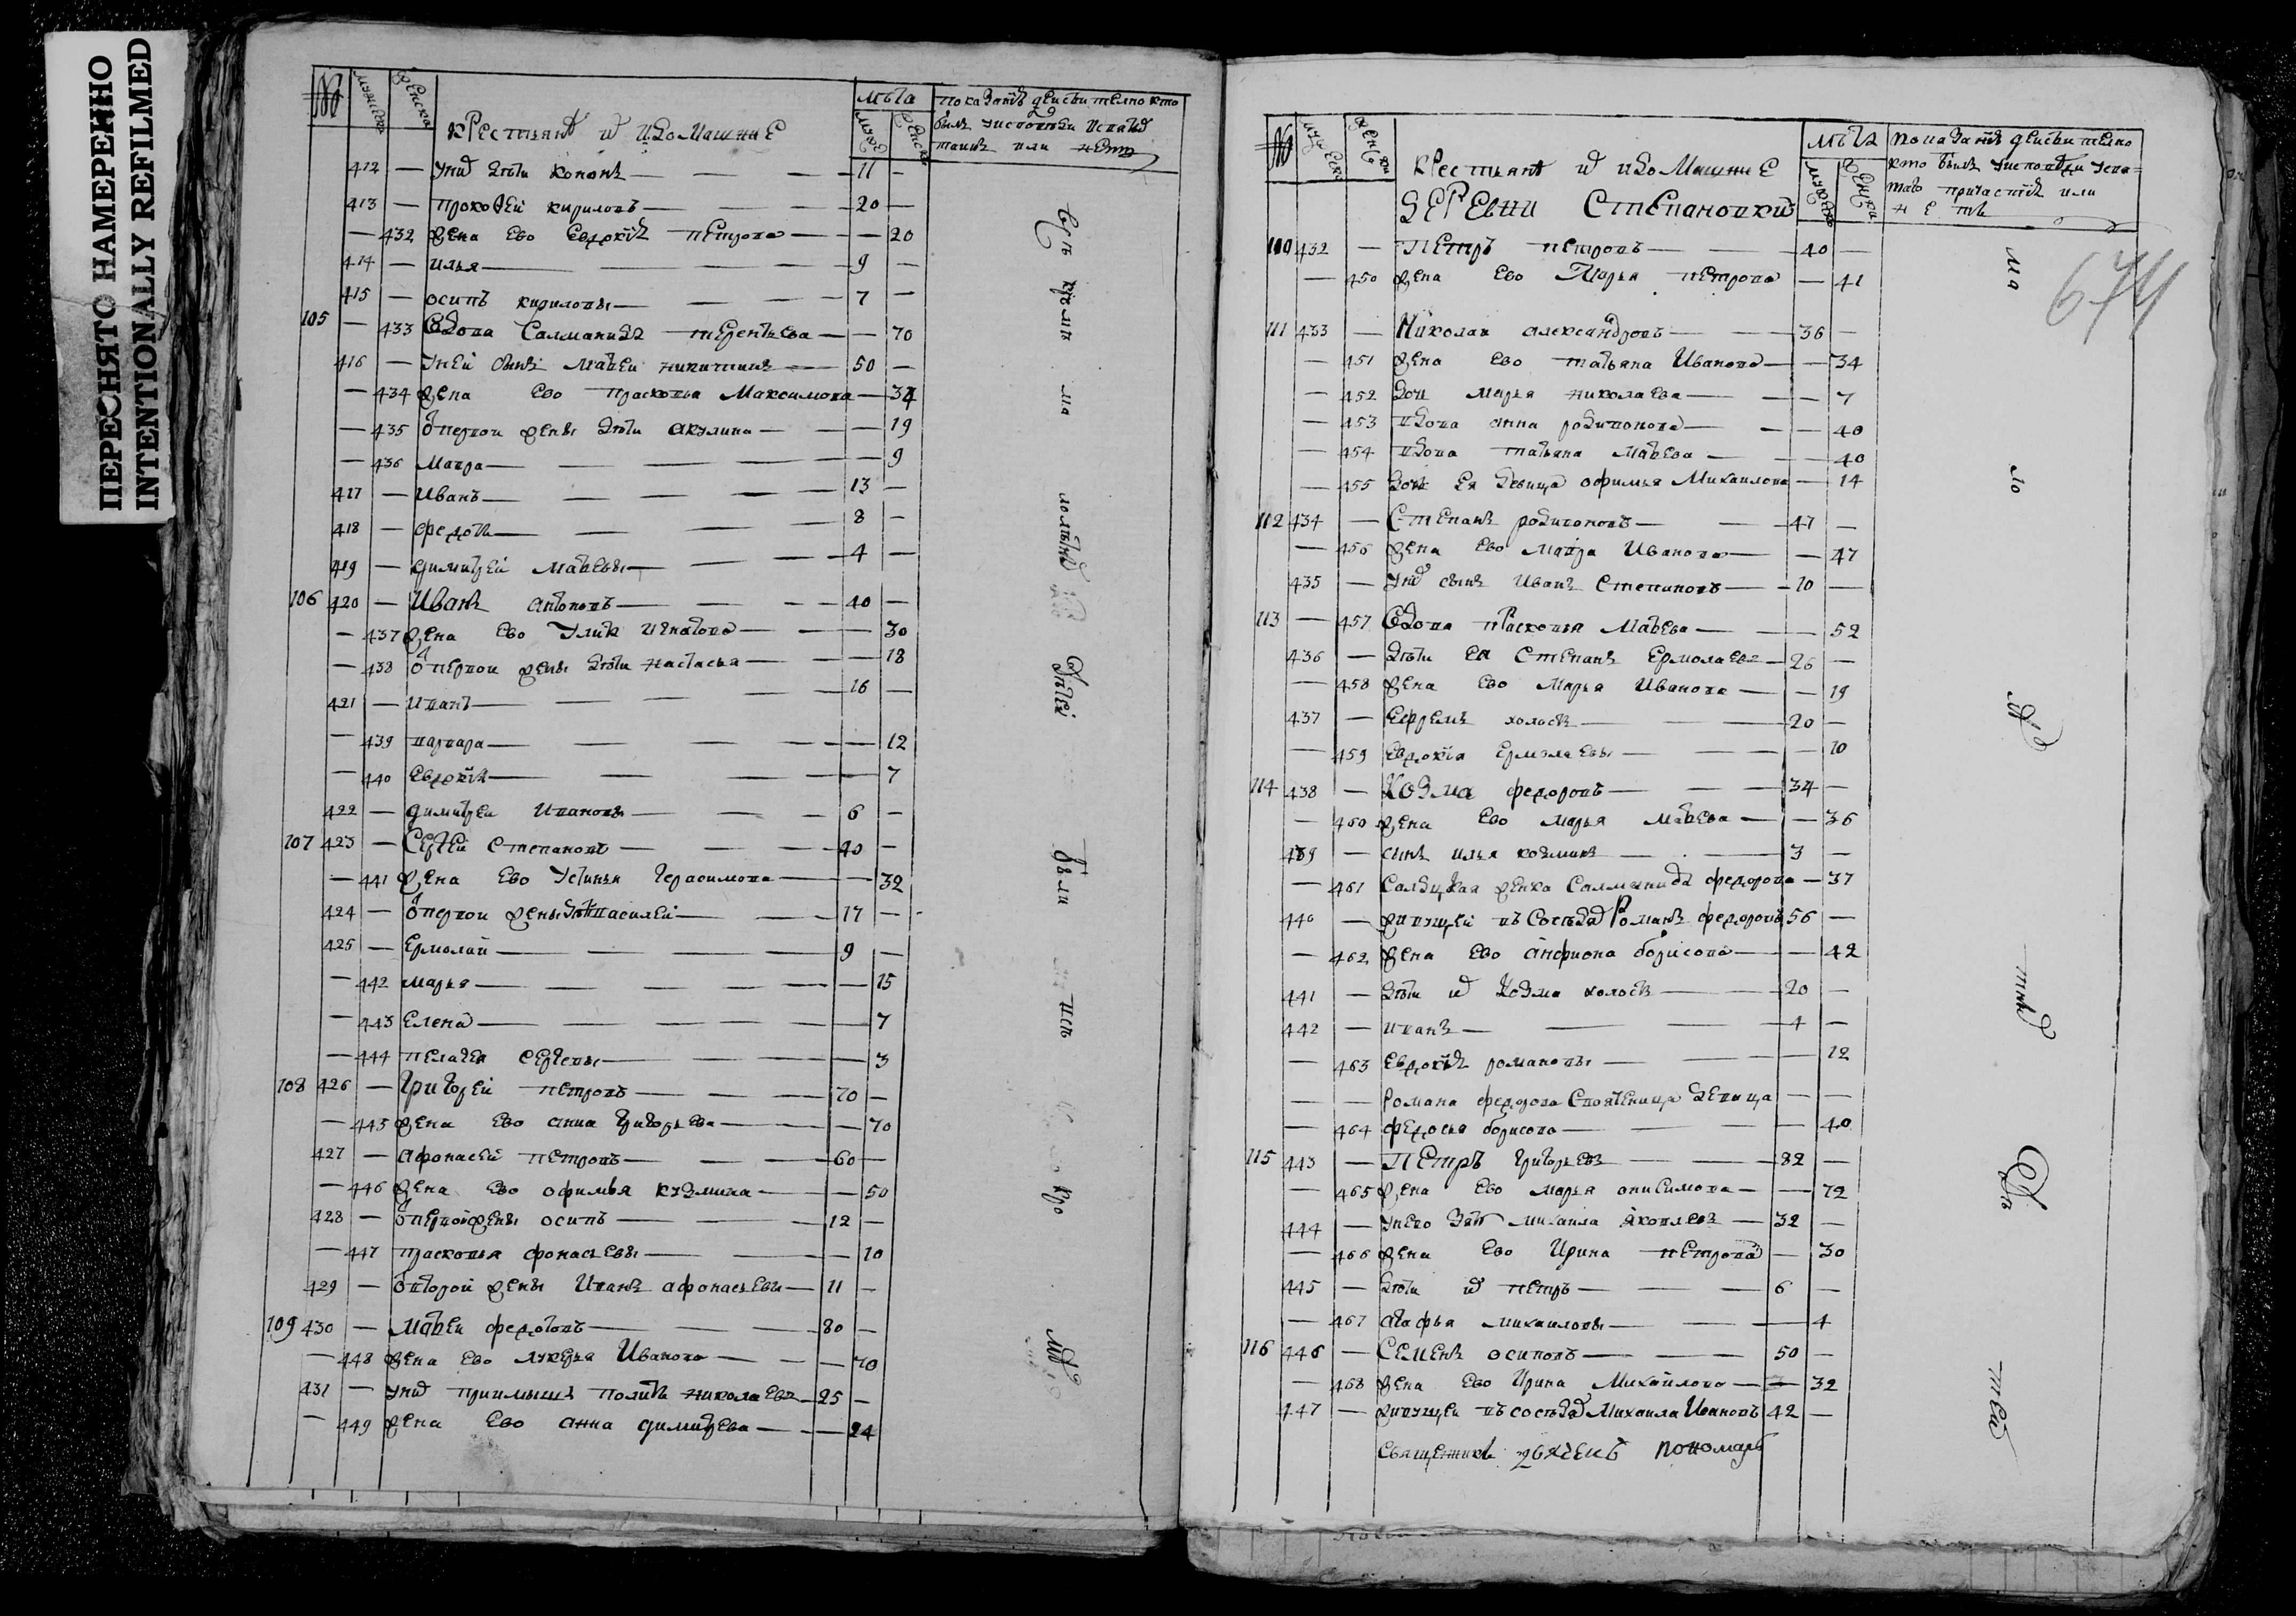 ПЕРЕСНЯТО НАМЕРЕННО
INTENTIONALLY REFILMED
№ мужеска женска крестьянѣ и их домашние лѣта мужес женска
показанiе действително кто
былъ у исповѣди и святыхъ
таинъ или нетъ
412 — у них дѣти кононъ — 11 —
413 — прокофей кириловъ — 20 —
— 432 жена ево Евдокiя петрова — — 20
414 — илья — 9 —
415 — осипъ кириловы — 7 —
105 — 433 вдова Саламанида терентьева — — 70
416 — у ней сынъ матвей никитинъ — 50 —
— 434 жена ево прасковья Максимова — 34
— 435 от первои жены дѣти акулина — — 19
— 436 мавра — — 9
417 — Иванъ — 13 —
418 — федотъ — 8 —
419 — димитрей матвевы — 4 —
106 420 — Иванъ антоновъ — 40 —
— 437 жена ево Улита игнатова — — 30
— 438 от первои жены дѣти настасья — — 18
421 — иванъ — 16 —
— 439 варвара — — 12
— 440 Евдокiя — — 7
422 — димитреи ивановы — 6 —
107 423 — Сергей степановъ — 40 —
— 441 жена ево Устинья герасимова — — 32
424 — от первои жены дѣти василей — 17 —
425 — Ермолай — 9 —
— 442 марья — — 15
— 443 Елена — — 7
— 444 пелагея сергевы — — 3
108 426 — Григорей петровъ — 70 —
— 445 жена ево анна григорьева — — 70
427 — афонасей петровъ — 60 —
— 446 жена ево офимья кузмина — — 50
428 — от первой жены осипъ — 12 —
— 447 прасковья афонасьевы — — 10
429 — от второй жены Иванъ афонасьевы — 11 —
109 430 — Матвеи федотовъ — 80 —
— 448 жена ево лукерья Иванова — — 70
431 — у них приимышъ николаевъ — 25 —
— 449 жена ево анна димитрева — — 24
№ мужеска женска крестьянѣ и их домашние лѣта мужеска женска
показанiе действително
кто былъ у исповѣди у свя=
таго причастiя или
нетъ
674
деревни степановки
110 432 — петръ петровъ — 40 —
— 450 жена ево Марья петрова — 41
111 433 — Николаи александровъ — 36 —
— 451 жена ево татьяна Иванова — — 34
— 452 дочь марья николаева — — 7
— 453 вдова анна родионова — — 40
— 454 вдова татьяна матвева — — 40
— 455 дочь ея девица офимья Михаилова — 14
112 434 — степанъ родионовъ — 47 —
— 456 жена ево мавра Иванова — — 47
435 — у них сынъ Иванъ степановъ — 10 —
113 — 457 вдова прасковья матвева — — 52
436 — дѣти ея степанъ ермолаевъ — 26 —
— 458 жена ево марья Иванова — — 19
437 — Ефремъ холостъ — 20 —
— 459 Евдокiя ермолаевы — — 10
114 438 — Козма федоровъ — 34 —
— 460 жена ево марья матвева — — 36
439 — сынъ илья козминъ — 3 —
— 461 салдцкая женка Саламанида федорова — 37
440 — живущей въ соседах Романъ федоровъ 56 —
— 462 жена ево анфиона борисова — — 42
441 — дѣти их Козма холостъ — 20 —
442 — иванъ — 4 —
— 463 Евдокiя романовы — — 12
— — романа федорова своячница девица — —
— 464 федосья борисова — — 40
115 443 — петръ григорьевъ — 82 —
— 465 жена ево марья анисимова — — 72
444 — у нево зять михаила яковлевъ — 32 —
— 466 жена ево Ирина петрова — 30
445 — дѣти их петръ — 6 —
— 467 агафья михаиловы — — 4
116 446 — семенъ осиповъ — 50 —
— 468 жена ево Ирина Михайлова — — 32
447 — живущеи въ соседах Михаила Ивановъ 42 —
священникъ дьяченъ пономарь